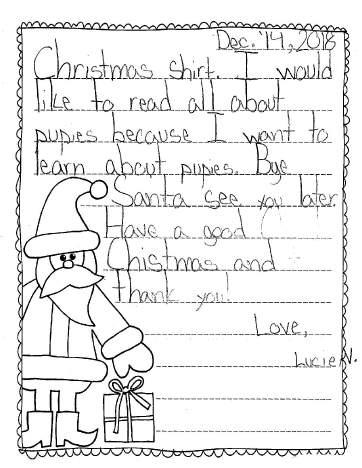 Dec. 14, 2016
Christmas shirt. I would
like to read all about
pupies because I want to
learn about pupies. Bye
Santa see you later.
Have a good
Chistmas and
thank you!
Love,
Lucie N.